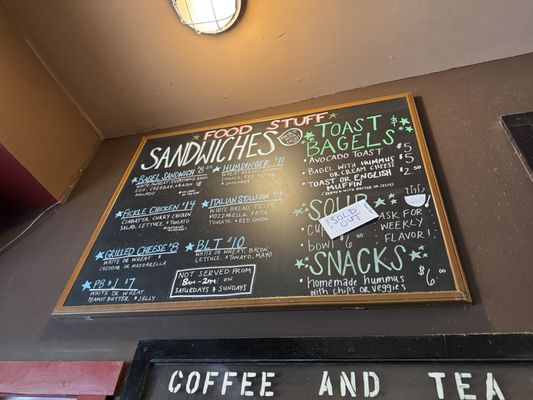 FOOD STUFF
SANDWICHES
BAGEL SANDWICH $8
EGG, CHEDDAR, BACON
PICKLE CHICKEN $14
CIABATTA, CURRY CHICKEN
SALAD, LETTUCE, TOMATO
GRILLED CHEESE $8
WHITE OR WHEAT
CHEDDAR OR MAZZARELLA
PB & J $7
WHITE OR WHEAT,
PEANUT BUTTER & JELLY
HUMDINGER $11
ITALIAN STALLION $11
MAZZARELLA, FETA,
TOMATO & RED ONION
BLT $10
WHITE OR WHEAT, BACON,
LETTUCE, TOMATO, MAYO
NOT SERVED FROM
8AM-2PM ON
SATURDAYS & SUNDAYS
TOAST
BAGELS
AVOCADO TOAST $5
BAGEL WITH HUMMUS $5
OR CREAM CHEESE
TOAST OR ENGLISH $2
MUFFIN
SOUP
SOLD
OUT
CUP
BOWL
ASK FOR
WEEKLY
FLAVOR!
SNACKS
HOMEMADE HUMMUS $6
WITH CHIPS OR VEGGIES
COFFEE AND TEA